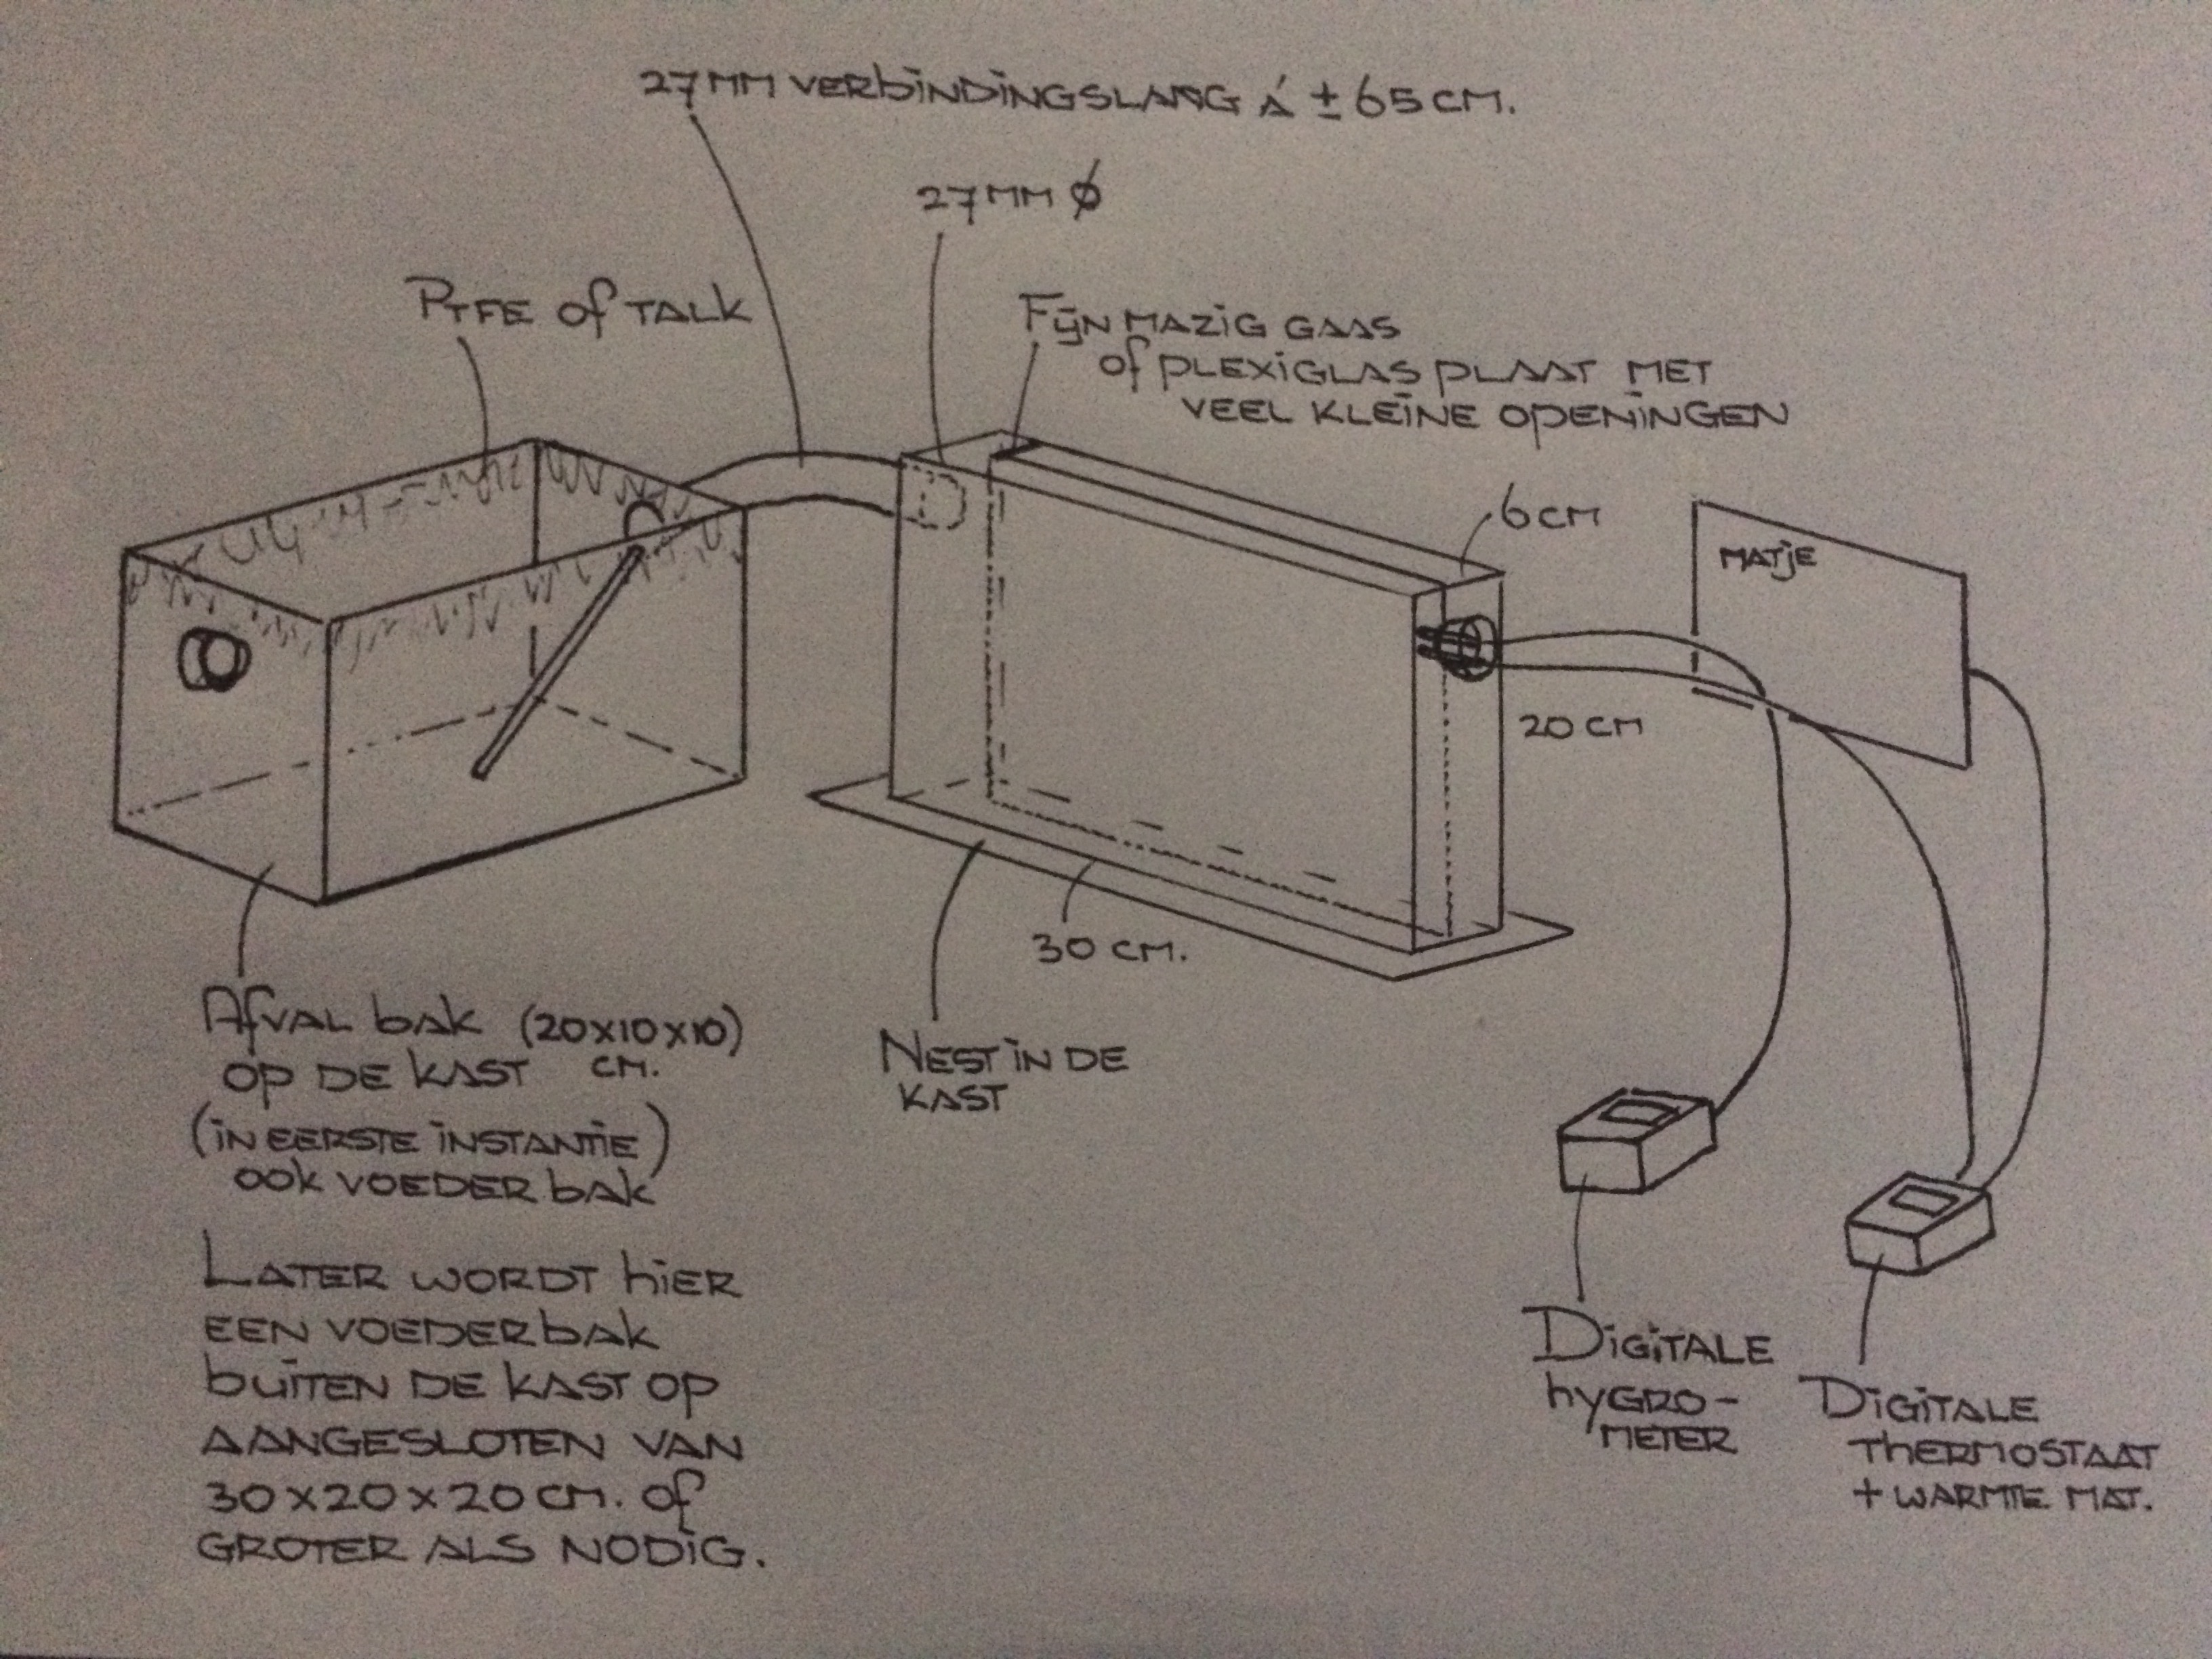 27mm verbindingslang á ± 65 cm.
27mm ø
Ptfe of talk
Fijn mazig gaas
of plexiglas plaat met
veel kleine openingen
6 cm
matje
20 cm
30 cm.
Afval bak (20x10x10)
op de kast cm.
(in eerste instantie)
ook voederbak
Nest in de
kast
Later wordt hier
een voederbak
buiten de kast op
aangesloten van
30x20x20 cm. of
groter als nodig.
Digitale
hygro-
meter
Digitale
thermostaat
+ warmte mat.